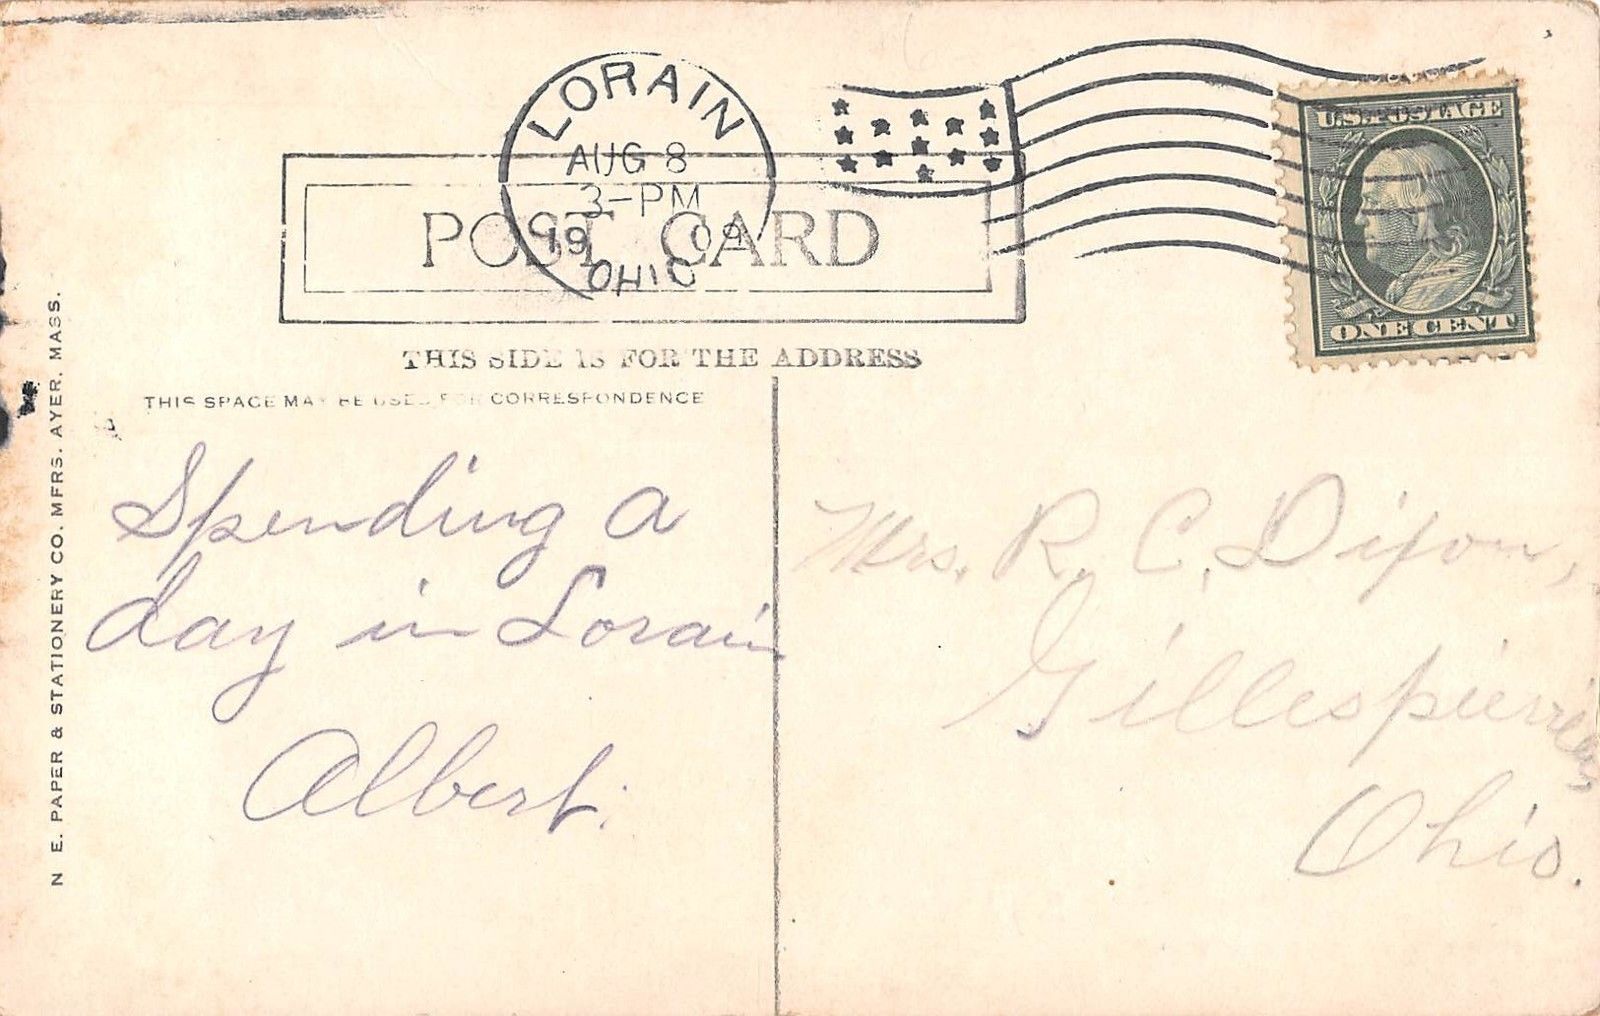 LORAIN
AUG 8
3-PM
19 09
OHIO
U.S. POSTAGE
ONE CENT
POST CARD
THIS SIDE IS FOR THE ADDRESS
THIS SPACE MAY BE USED FOR CORRESPONDENCE
N. E. PAPER & STATIONERY CO. MFRS. AYER. MASS.
Spending a
day in Lorain
Albert.
Mrs. R. C. Dixon,
Ohio.